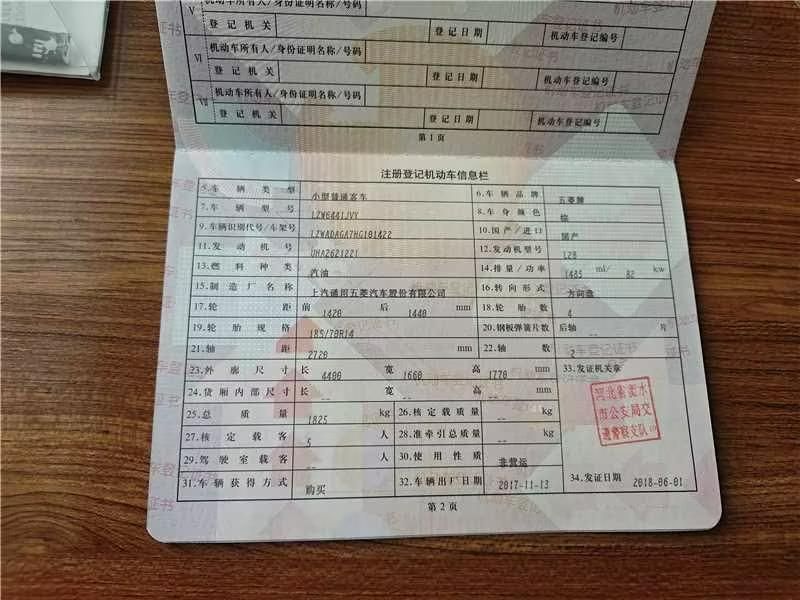 V 机动车所有人/身份证明名称/号码
登记机关 登记日期 机动车登记编号
VI 机动车所有人/身份证明名称/号码
登记机关 登记日期 机动车登记编号
VII 机动车所有人/身份证明名称/号码
登记机关 登记日期 机动车登记编号
第 1 页
注册登记机动车信息栏
5.车辆类型 小型普通客车 6.车辆品牌 五菱牌
7.车辆型号 LZW6441JVY 8.车身颜色 棕
9.车辆识别代号/车架号 LZWADAGA7HG101422 10.国产/进口 国产
11.发动机号 UHA2621221 12.发动机型号 L2B
13.燃料种类 汽油 14.排量/功率 1485 ml/ 82 kw
15.制造厂名称 上汽通用五菱汽车股份有限公司 16.转向形式 方向盘
17.轮距 前 1420 后 1440 mm 18.轮胎数 4
19.轮胎规格 185/70R14 20.钢板弹簧片数 后轴 -- 片
21.轴距 2720 mm 22.轴数 2
23.外廓尺寸 长 4400 宽 1660 高 1770 mm 33.发证机关章
24.货厢内部尺寸 长 -- 宽 -- 高 -- mm
25.总质量 1825 kg 26.核定载质量 -- kg
27.核定载客 5 人 28.准牵引总质量 -- kg
29.驾驶室载客 -- 人 30.使用性质 非营运
31.车辆获得方式 购买 32.车辆出厂日期 2017-11-13 34.发证日期 2018-06-01
河北省衡水
市公安局交
通警察支队
第 2 页